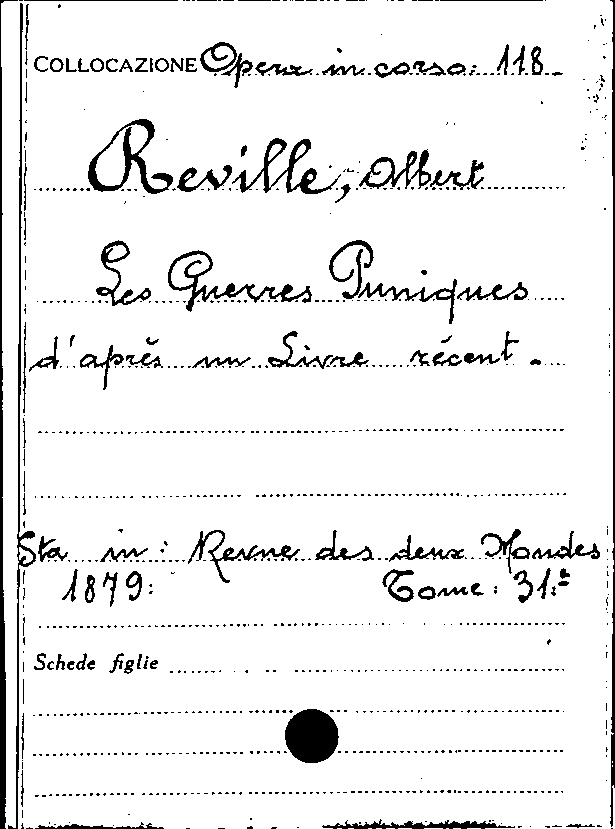 COLLOCAZIONE Opera in corso: 118.
Reville, Albert
Les Guerres Puniques
d'après un Livre récent.
Sta in: Revue des deux Mondes
1879: Tome: 31:
Schede figlie